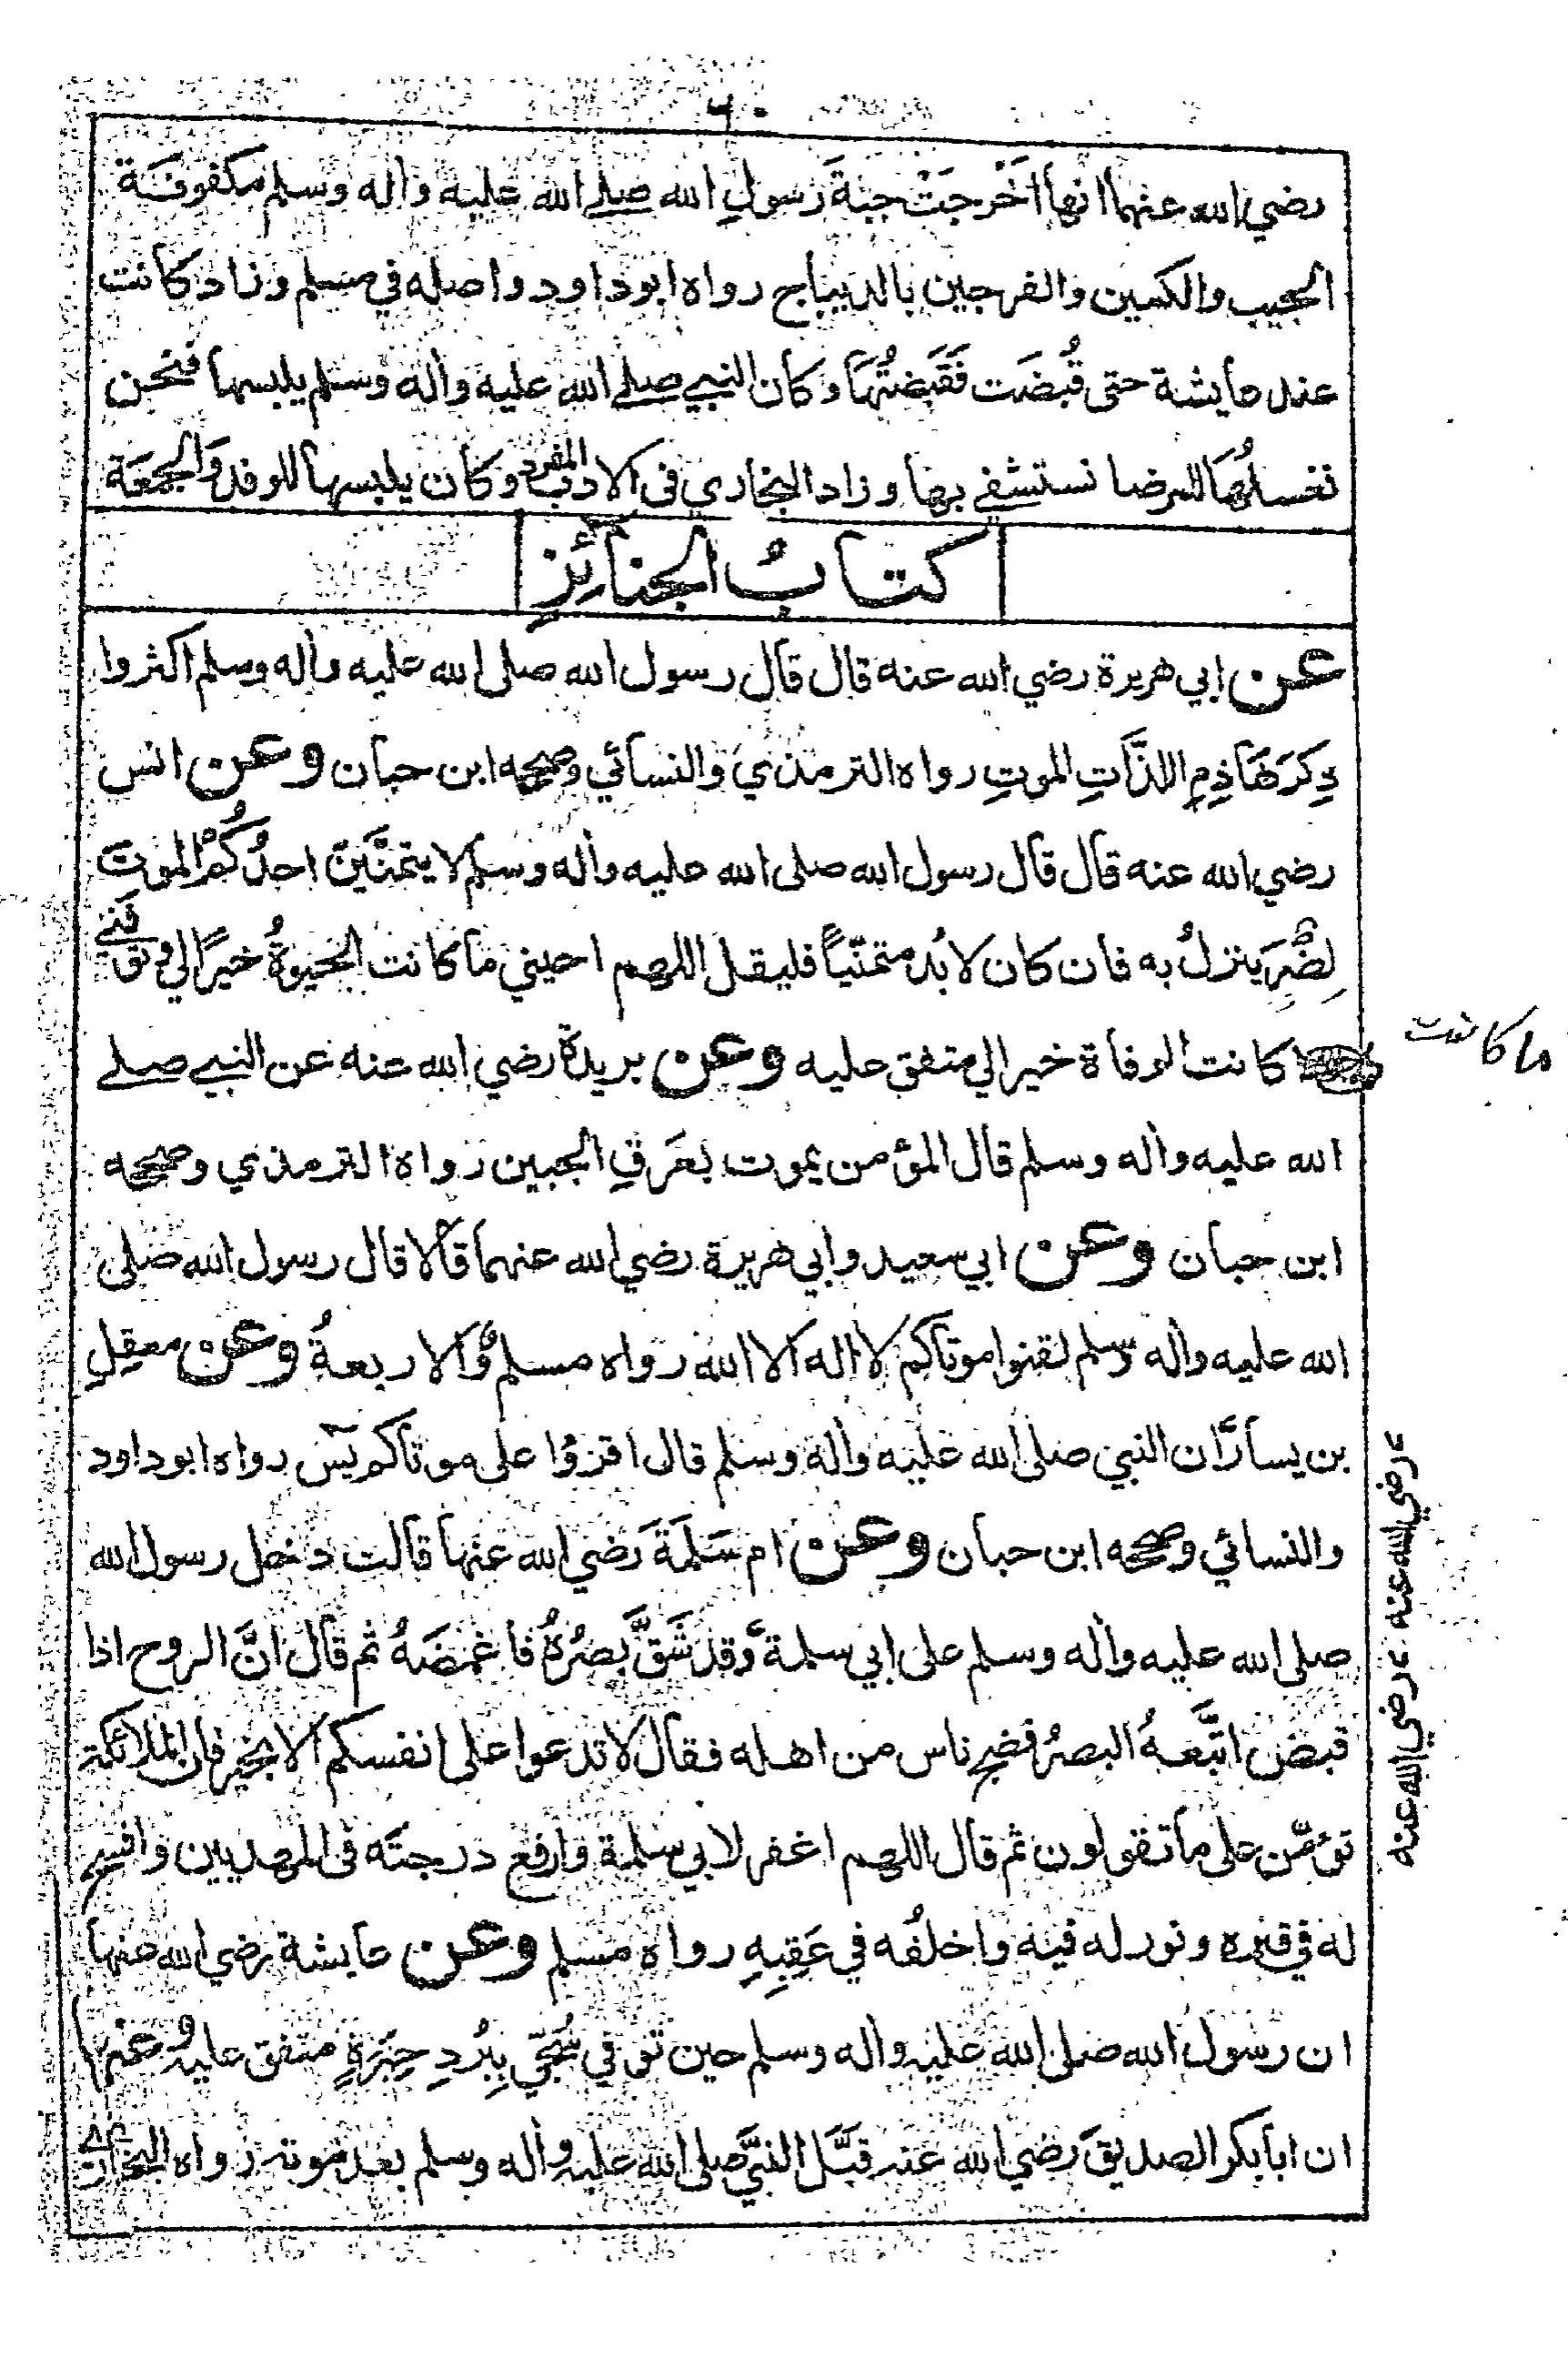 ٦٠
رضي الله عنهما انها اَخْرجَتْ جبةَ رَسولِ الله صلے الله عليه واله وسلم مكفوفة
الجيب والكمين والفرجين بالديباج رواه ابوداود واصله في مسلم وزاد كانت
عند عايشة حتى قُبضَت فَقَبَضتُهَا وكان النبي صلے الله عليه واله وسلم يلبسها فنحن
نغسلُهَا للمرضا نستشفے بها وزاد البخاري فى الادب المفرد وكان يلبسها للوفد والجمعة
كتابُ الجنائزِ
عن ابي هريرة رضي الله عنه قال قال رسول الله صلى الله عليه واله وسلم اكثروا
ذِكرَ هَاذِمِ اللذَّاتِ الموتِ رواه الترمذي والنسائي وصححه ابن حبان وعن انس
رضي الله عنه قال قال رسول الله صلى الله عليه واله وسلم لا يتمنَّيَنَّ احدُكُمْ الموت
لِضُرٍّ ينزلُ به فان كان لابُد متمنّياً فليقل اللهم احيني ما كانت الحيوةُ خيرًا لي وتوفنے
كانت الوفاة خيرا لي متفق عليه وعن بريدة رضي الله عنه عن النبي صلے
ما كانت
الله عليه واله وسلم قال المؤمن يموت بعَرَقِ الجبين رواه الترمذي وصححه
ابن حبان وعن ابي سعيد وابي هريرة رضي الله عنهما قالا قال رسول الله صلى
الله عليه واله وسلم لقنوا موتاكم لا اله الا الله رواه مسلم والاربعةُ وعن معقِلِ
بن يسار انَّ النبي صلى الله عليه واله وسلم قال اقرؤا على موتاكم يٓس رواه ابوداود
والنسائي وصححه ابن حبان وعن ام سَلمَةَ رَضي الله عنها قالت دخل رسول الله
صلى الله عليه واله وسلم على ابي سلمة وَقد شَقَّ بصرُهُ فاغمضَهُ ثم قال انَّ الروح اذا
قبض اتَّبعهُ البصرُ فضج ناس من اهله فقال لا تدعوا على انفسكم الا بخير فان الملائكة
تؤمّن على ما تقولون ثم قال اللهم اغفر لابي سلمة وارفع درجته فى المهديين وافسح
له في قبره ونور له فيه واخلُفه في عَقِبِهِ رواه مسلم وعن عايشة رضي الله عنها
ان رسول الله صلى الله عليه واله وسلم حين توفي سُجّي بِبُردِ حِبَرَةٍ متفق عليه وعنها
ان ابا بكر الصديق رضي الله عنه قبَّل النبيَّ صلى الله عليه واله وسلم بعد موته رواه البخاري
رضي الله عنه
رضي الله عنه